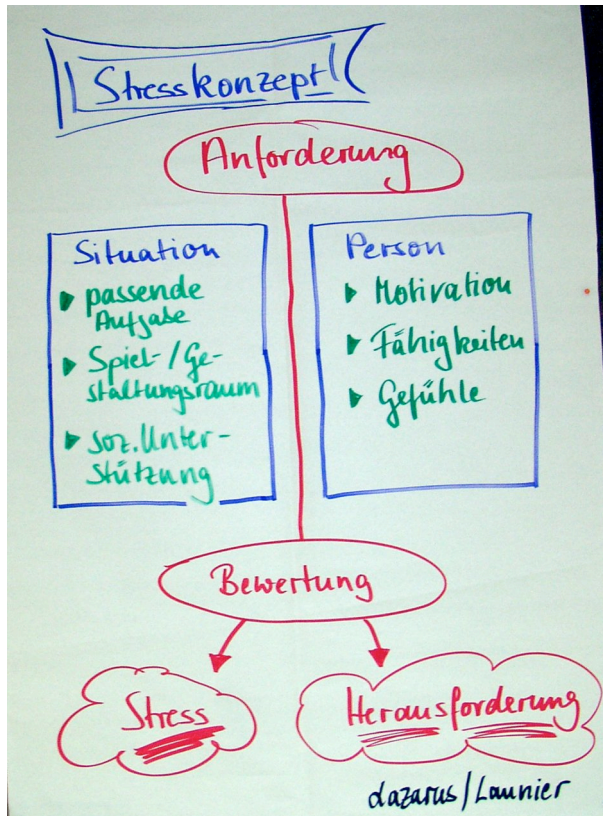 Stresskonzept
Anforderung
Situation
▶ passende
Aufgabe
▶ Spiel-/Ge-
staltungsraum
▶ soz. Unter-
stützung
Person
▶ Motivation
▶ Fähigkeiten
▶ Gefühle
Bewertung
Stress
Herausforderung
Lazarus/Launier